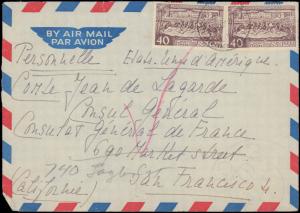 BY AIR MAIL
PAR AVION
40 40
Personnelle Etats-Unis d'Amérique
Comte Jean de Lagarde
Consul Général
Consulat Général de France
690 Market Street
740
San Francisco 4
(Californie)